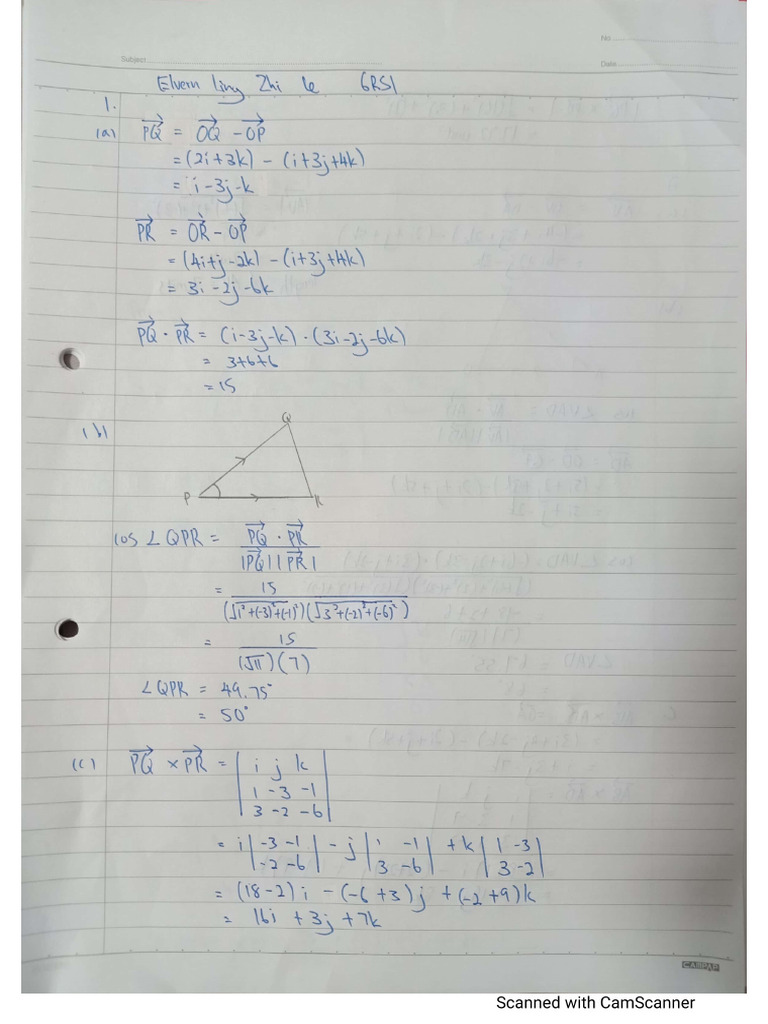 No.
Subject
Date
Elvern Ling Zhi Le 6RS1
1.
(a) PQ⃗ = OQ⃗ − OP⃗
= (2i+3k) − (i+3j+4k)
= i−3j−k
PR⃗ = OR⃗ − OP⃗
= (4i+j−2k) − (i+3j+4k)
= 3i−2j−6k
PQ⃗ · PR⃗ = (i−3j−k) · (3i−2j−6k)
= 3+6+6
= 15
(b)
Q
P R
cos ∠QPR = PQ⃗ · PR⃗ / |PQ⃗||PR⃗|
= 15 / (√1²+(−3)²+(−1)²)(√3²+(−2)²+(−6)²)
= 15 / (√11)(7)
∠QPR = 49.75°
= 50°
(c) PQ⃗ × PR⃗ = | i j k |
| 1 −3 −1 |
| 3 −2 −6 |
= i |−3 −1| − j |1 −1| + k |1 −3|
|−2 −6| |3 −6| |3 −2|
= (18−2)i − (−6+3)j + (−2+9)k
= 16i + 3j + 7k
CAMPAP
Scanned with CamScanner